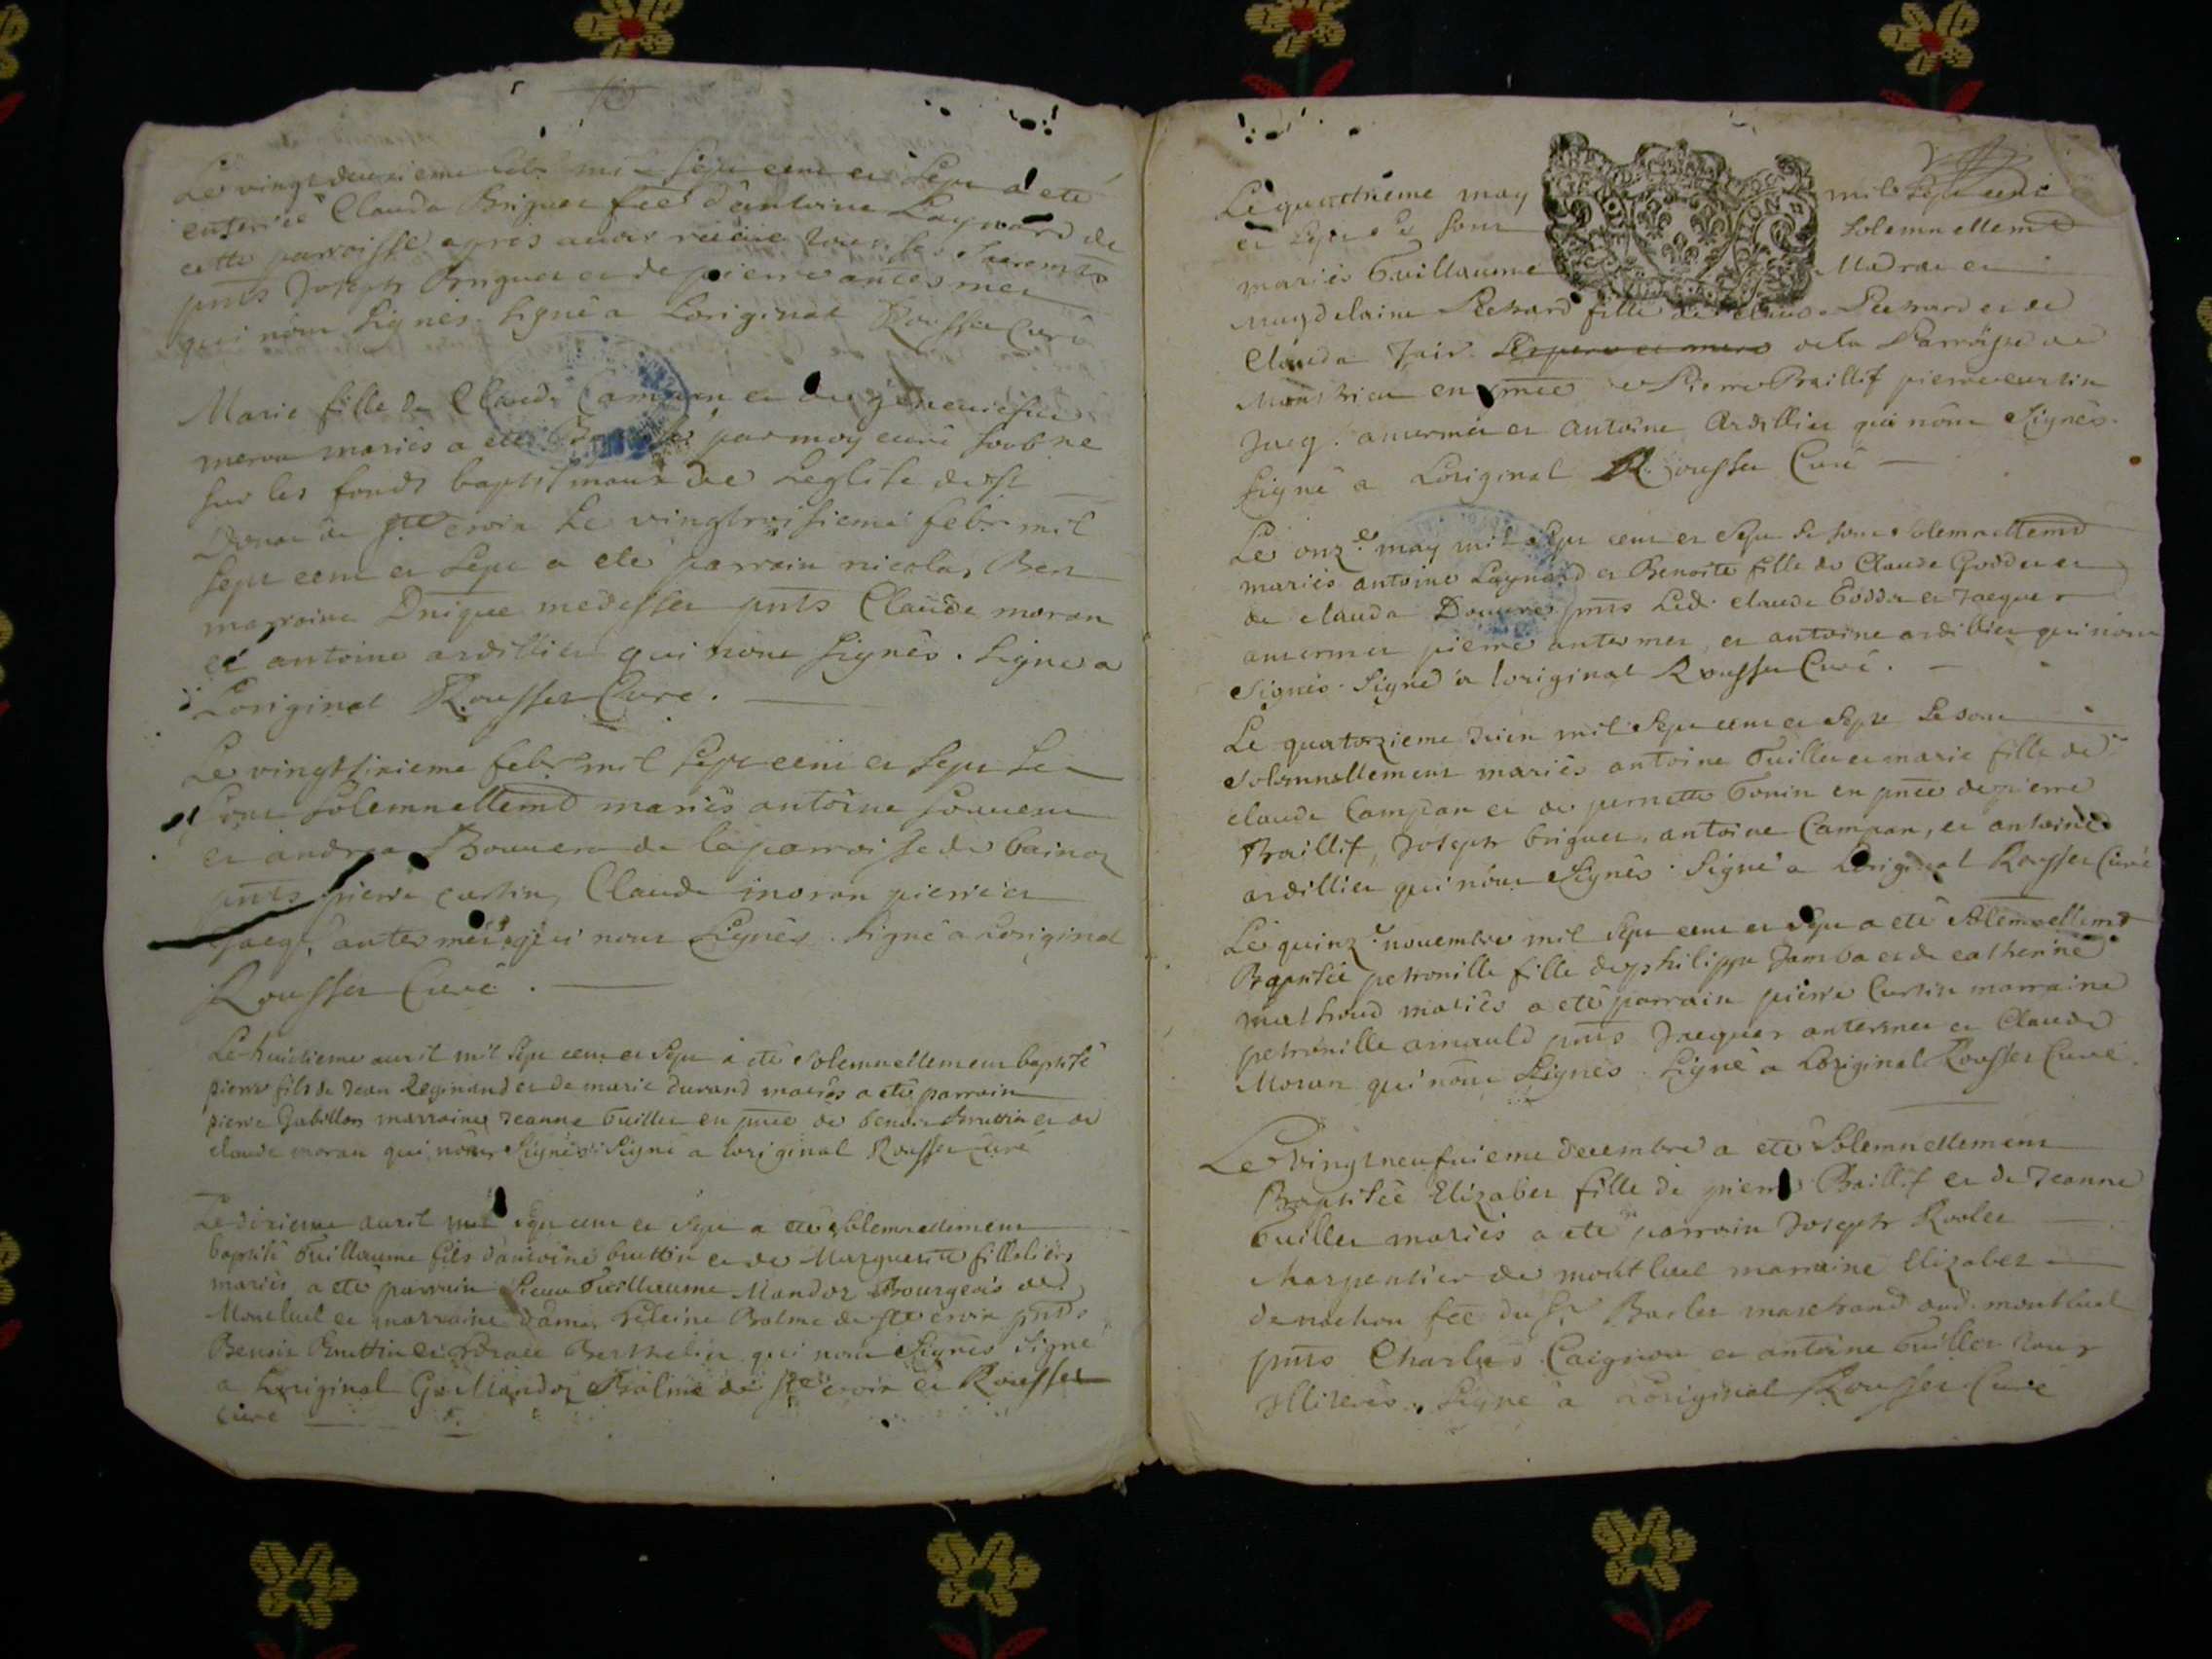 Le vingtdeuxieme febr mil sept cent et sept a eté
enterrée Clauda Briguet fee d'antoine Laynard de
cette parroisse apres avoir receue tous les Sacremts
pnts Joseph Briguet et de pierre antesmet
qui nont signés. Signé a Loriginal Rousset Curé
Marie fille de Claude Campan et de
mariés a eté par moy curé soubne
sur les fonds baptismaux de Leglise de st
Donat de ste croix Le vingtroisieme febr. mil
sept cent et sept a eté parrain nicolas Ber
marraine Dnique medesser pnts Claude moran
et antoine ardillier qui nont signés. Signé a
Loriginal Rousset Curé.
Le vingtsixieme febr mil sept cent et sept se
sont solemnellemt mariés antoine
et andrea Bouvera de la parroisse de
pnts pierre curtin, Claude moran pierre et
Jacq. antesmet qui nont signés. Signé a Loriginal
Rousset Curé.
Le huictieme avril mil sept cent et sept a eté solemnellement baptisé
pierre fils de Jean Reginand et de marie durand mariés a eté parrain
pierre Gabillon marraine Jeanne Guillet en pnce de benoit bruttin et de
claude moran qui nont signés. Signé a loriginal Rousset Curé
Le dixieme avril mil sept cent et sept a eté solemnellement
baptisé Guillaume fils d'antoine bruttin et de Marguerite
mariés a eté parrain Sieur Guillaume Mandoz Bourgeois de
Montluel et marraine dame heleine Balme de ste croix pnts
Benoit Bruttin et Berthelin qui nont signés signé
a Loriginal Mandoz Balme de ste croix et Rousset
curé
Le quattrieme may mil sept cent
et sept se sont solemnellemt
mariés Guillaume Madrat et
Magdelaine Pechard fille de claude Pechard et de
Clauda Jair Les pere et mere de la Parroisse de
en pnce de Pierre Baillif pierre curtin
Jacq. antesmet et antoine Ardillier qui nont signés.
Signé a Loriginal Rousset Curé
Le onz.e may mil sept cent et sept se sont solemnellemt
mariés antoine Laynard et Benoite fille de Claude Goddet et
de clauda Douure pnts Led. claude Goddet et Jacques
antesmet pierre antesmet, et antoine ardillier qui nont
signés. Signé a loriginal Rousset Curé.
Le quatorzieme Juin mil sept cent et sept se sont
solemnellement mariés antoine Guillet et marie fille de
claude Campan et de pernette Gonin en pnce de pierre
Baillif, Joseph briguet, antoine Campan, et antoine
ardillier qui nont signés. Signé a Loriginal Rousset Curé
Le quinz.e novembre mil sept cent et sept a eté solemnellemt
Baptisée petronille fille de philippe Jamba et de catherine
mathoud mariés a eté parrain pierre Curtin marraine
petronille arnauld pnts Jacques antesmet et Claude
Moran qui nont signés. Signé a Loriginal Rousset Curé.
Le vingtneufuieme decembre a eté solemnellement
Baptisée Elizabet fille de pierre Baillif et de Jeanne
Guillet mariés a eté parrain Joseph Rolet
charpentier de montluel marraine Elizabet
denachon fee du Sr Barlet marchand aud. montluel
pnts Charles Caignon et antoine Guillet tous
illiterés. Signé a Loriginal Rousset Curé